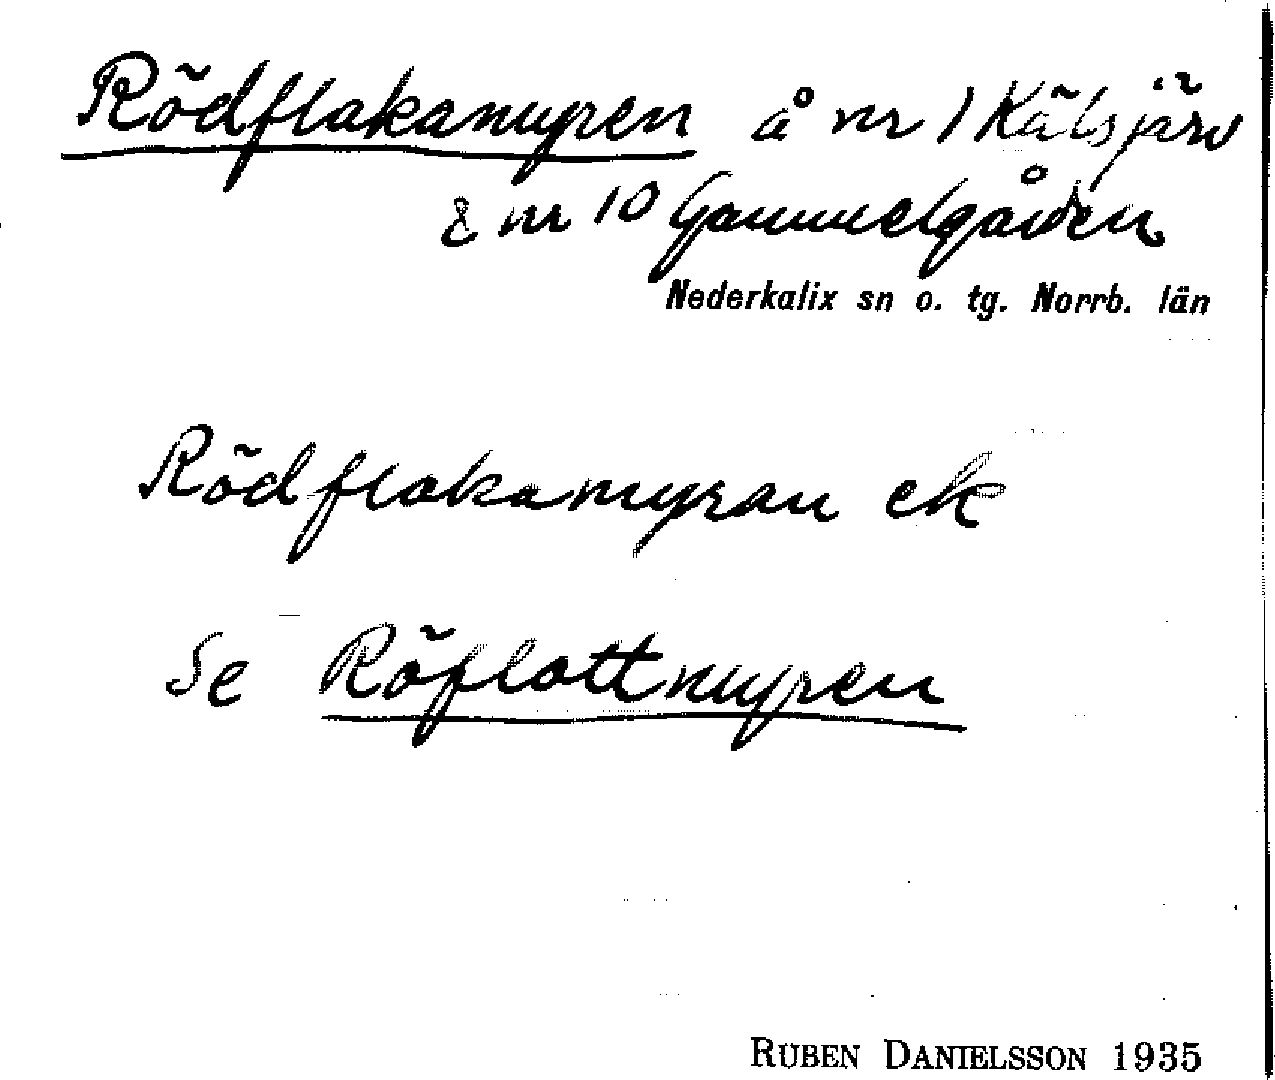 Rödflakamyren å nr 1 Kälsjärv
& nr 10 Gammelgården
Nederkalix sn o. tg. Norrb. län
Rödflakamyran ek
Se Röflottmyren
RUBEN DANIELSSON 1935